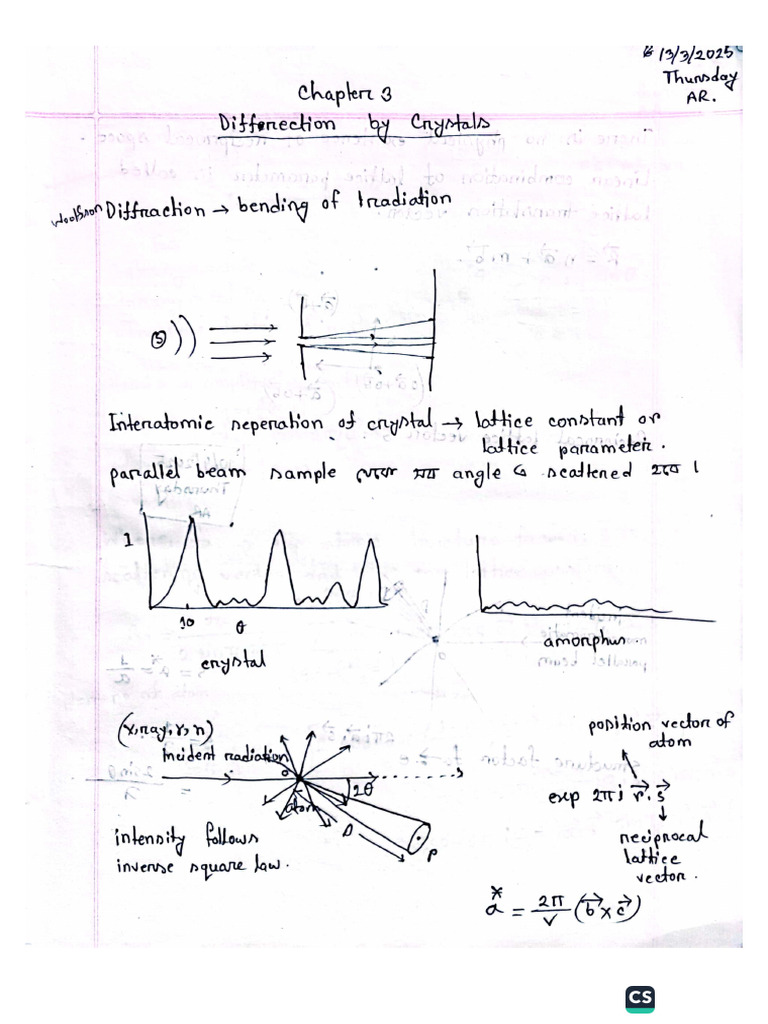 13/3/2025
Thursday
AR.
Chapter 3
Diffrection by Crystals
Woolfson Diffraction → bending of Irradiation
S
Interatomic seperation of crystal → lattice constant or
lattice parameter.
parallel beam sample থেকে সব angle এ scattered হবে ।
1
10
θ
crystal
amorphus
(x,ray, γ, n)
incident radiation
o
atom
2θ
D
P
intensity follows
inverse square law.
position vector of
atom
exp 2πi r⃗.s⃗
reciprocal
lattice
vector.
a* = 2π/V (b⃗×c⃗)
CS